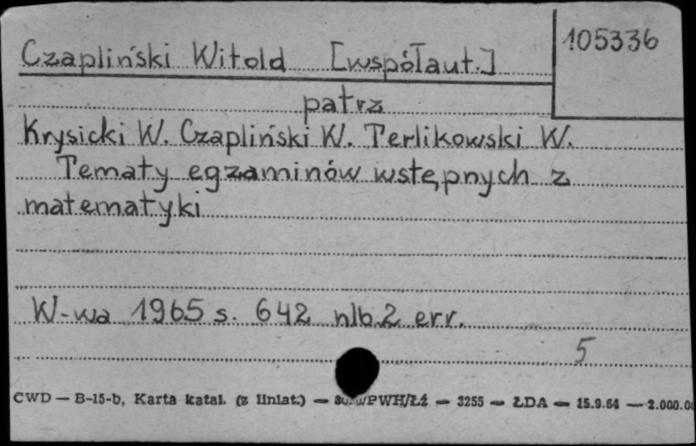 105336
Czapliński Witold [współaut.]
patrz
Krysicki W. Czapliński W. Terlikowski W.
Tematy egzaminów wstępnych z
matematyki
W-wa 1965 s. 642 nlb.2 err.
5
CWD — B-15-b, Karta katal. (z liniat.) — /PWH/Łź — 3255 — ŁDA — 15.9.64 — 2.000.0